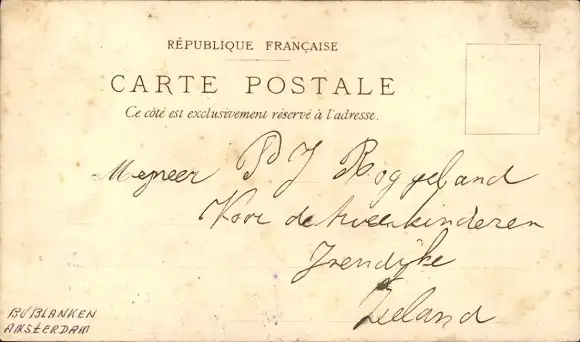 RÉPUBLIQUE FRANÇAISE
CARTE POSTALE
Ce côté est exclusivement réservé à l'adresse.
Meyneer P J Roggeband
Voor de twee kinderen
Yzendijke
Zeeland
BV BLANKEN
AMSTERDAM